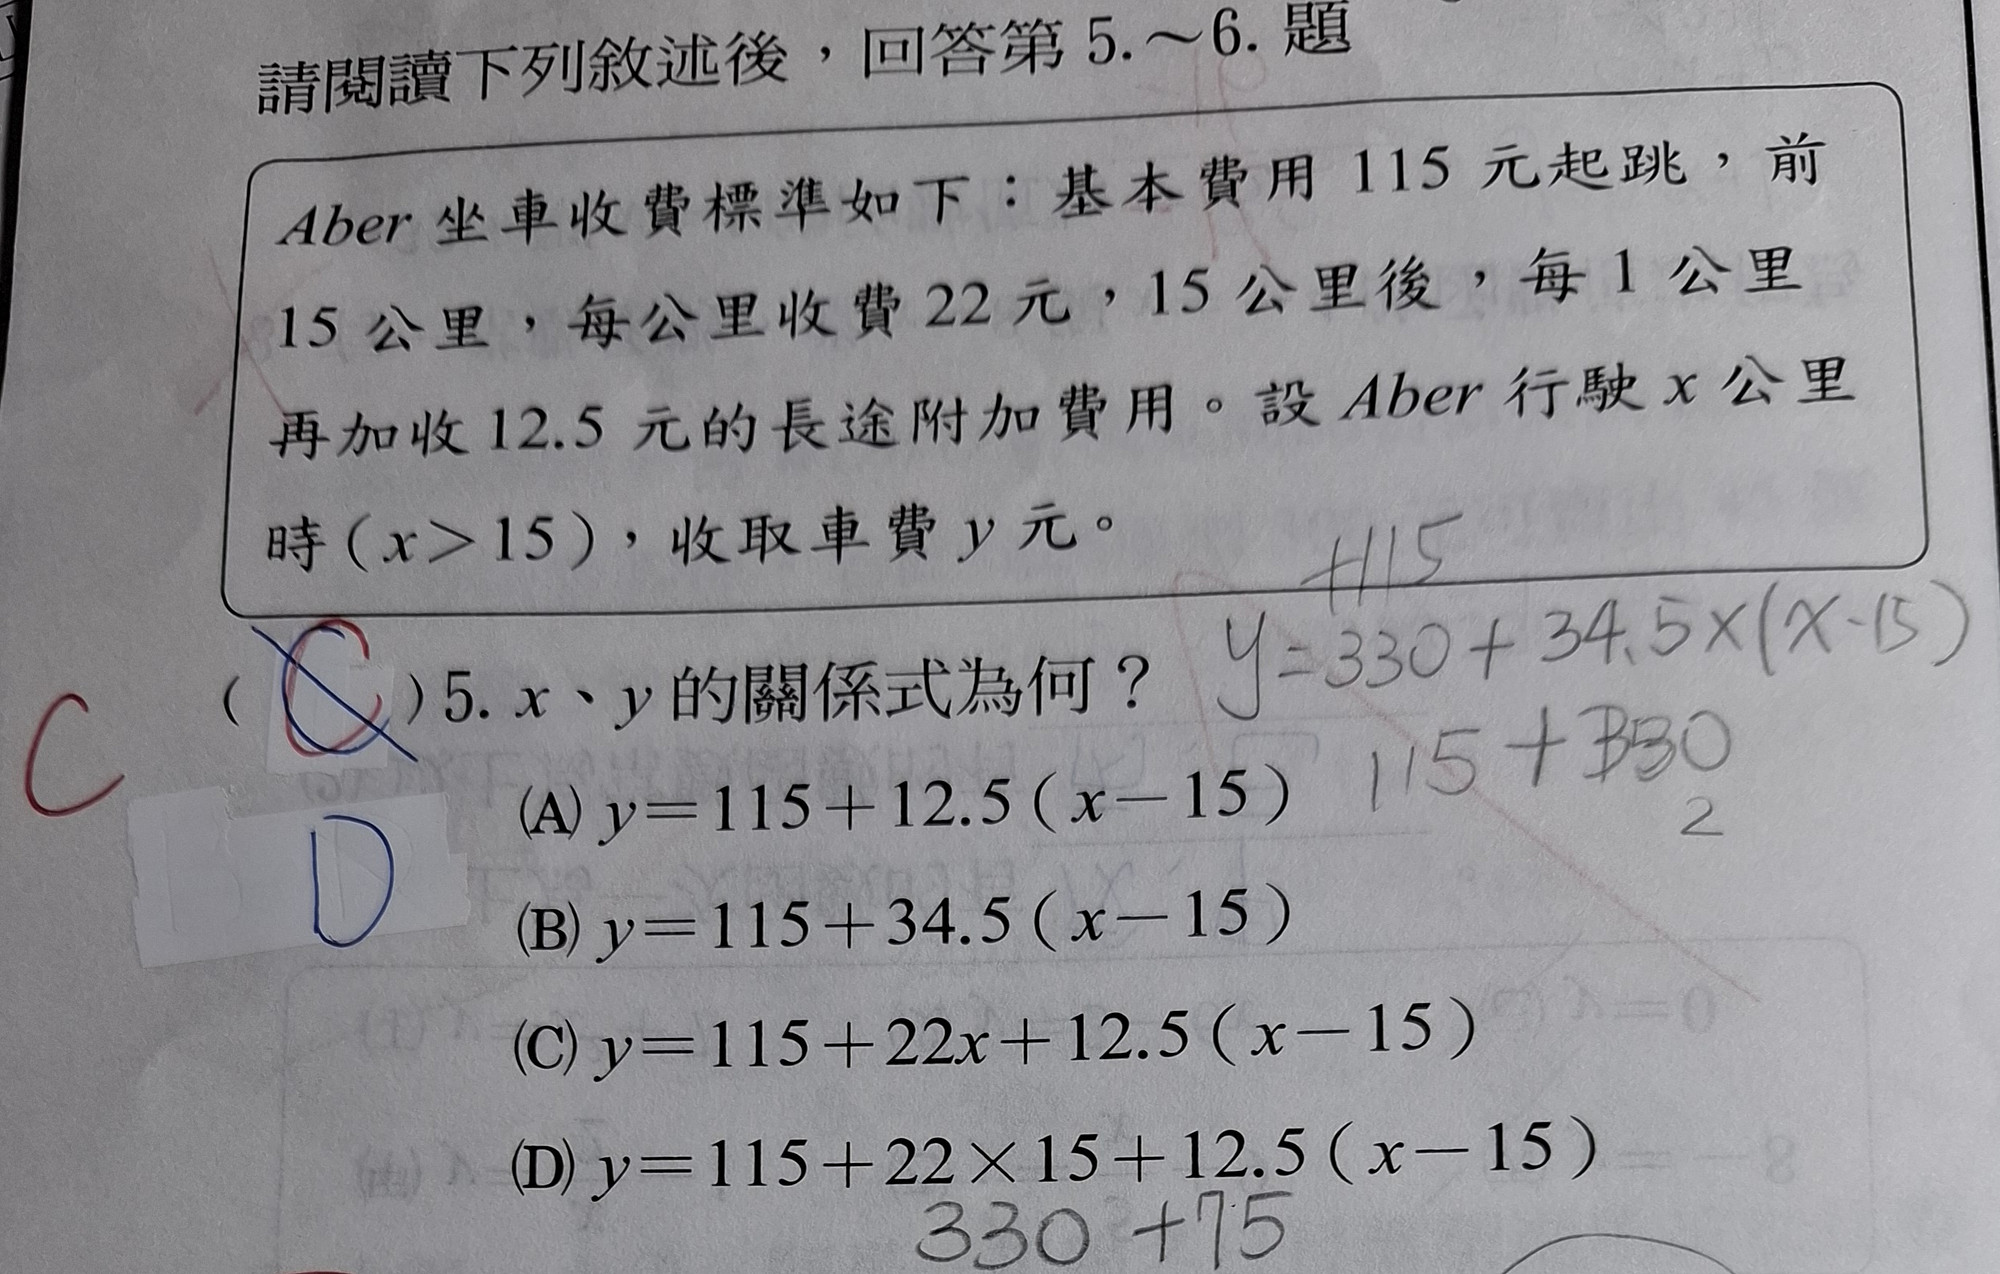 請閱讀下列敘述後，回答第 5.～6. 題
Aber 坐車收費標準如下：基本費用 115 元起跳，前
15 公里，每公里收費 22 元，15 公里後，每 1 公里
再加收 12.5 元的長途附加費用。設 Aber 行駛 x 公里
時（x＞15），收取車費 y 元。
+115
y=330+34.5×(x-15)
( C )5. x、y 的關係式為何？
115+330
2
C
(A) y＝115＋12.5（x－15）
D
(B) y＝115＋34.5（x－15）
(C) y＝115＋22x＋12.5（x－15）
(D) y＝115＋22×15＋12.5（x－15）
330 +75